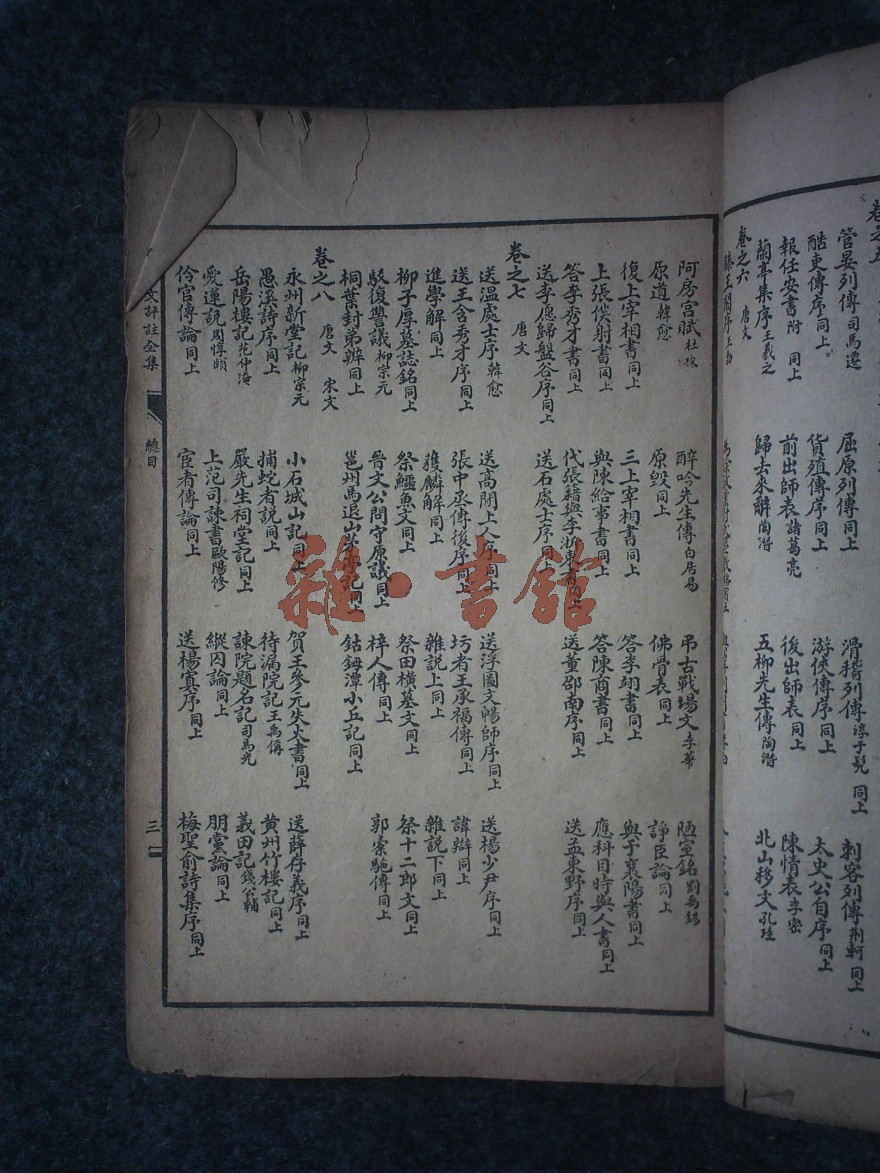 卷之五
管晏列傳司馬遷 屈原列傳同上 滑稽列傳淳于髡 同上 刺客列傳荊軻 同上
酷吏傳序同上 貨殖傳序同上 游俠傳序同上 太史公自序同上
報任安書附 同上 前出師表諸葛亮 後出師表同上 陳情表李密
蘭亭集序王羲之 歸去來辭陶潛 五柳先生傳陶潛 北山移文孔珪
卷之六 唐文
滕王閣序王勃
阿房宮賦杜牧 醉吟先生傳白居易 弔古戰場文李華 陋室銘劉禹錫
原道韓愈 原毀同上 佛骨表同上 諍臣論同上
復上宰相書同上 三上宰相書同上 答李翊書同上 與于襄陽書同上
上張僕射書同上 與陳給事書同上 答陳商書同上 應科目時與人書同上
答李秀才書同上 代張籍與李浙東書同上 送董邵南序同上 送孟東野序同上
送李愿歸盤谷序同上 送石處士序同上
卷之七 唐文
送溫處士序韓愈 送高閒上人序同上 送浮圖文暢師序同上 送楊少尹序同上
送王含秀才序同上 張中丞傳後序同上 圬者王承福傳同上 諱辯同上
進學解同上 獲麟解同上 雜說上同上 雜說下同上
柳子厚墓誌銘同上 祭鱷魚文同上 祭田橫墓文同上 祭十二郎文同上
駁復讐議柳宗元 晉文公問守原議同上 梓人傳同上 郭橐駝傳同上
桐葉封弟辨同上 邕州馬退山茅亭記同上 鈷鉧潭小丘記同上
卷之八 唐文 宋文
永州新堂記柳宗元 小石城山記同上 賀王參元失火書同上 送薛存義序同上
愚溪詩序同上 捕蛇者說同上 待漏院記王禹偁 黄州竹樓記同上
岳陽樓記范仲淹 嚴先生祠堂記同上 諫院題名記司馬光 義田記錢公輔
愛蓮說周惇頤 上范司諫書歐陽修 縱囚論同上 朋黨論同上
伶官傳論同上 宦者傳論同上 送楊寘序同上 梅聖俞詩集序同上
文評註全集 總目 三
雜·書館